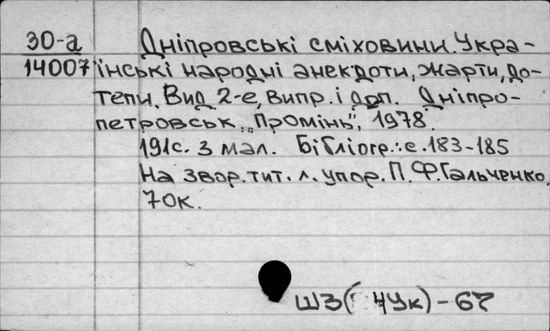 30-а Дніпровські сміховини. Укра-
14007 їнські народні анекдоти, жарти, до-
тепи. Вид. 2-е, випр. і доп. Дніпро-
петровськ, "Промінь", 1978.
191с. з мал. Бібліогр.: с. 183-185
На звор. тит. л. упор. П. Ф. Гальченко.
70к.
Ш3( 4Ук)-67